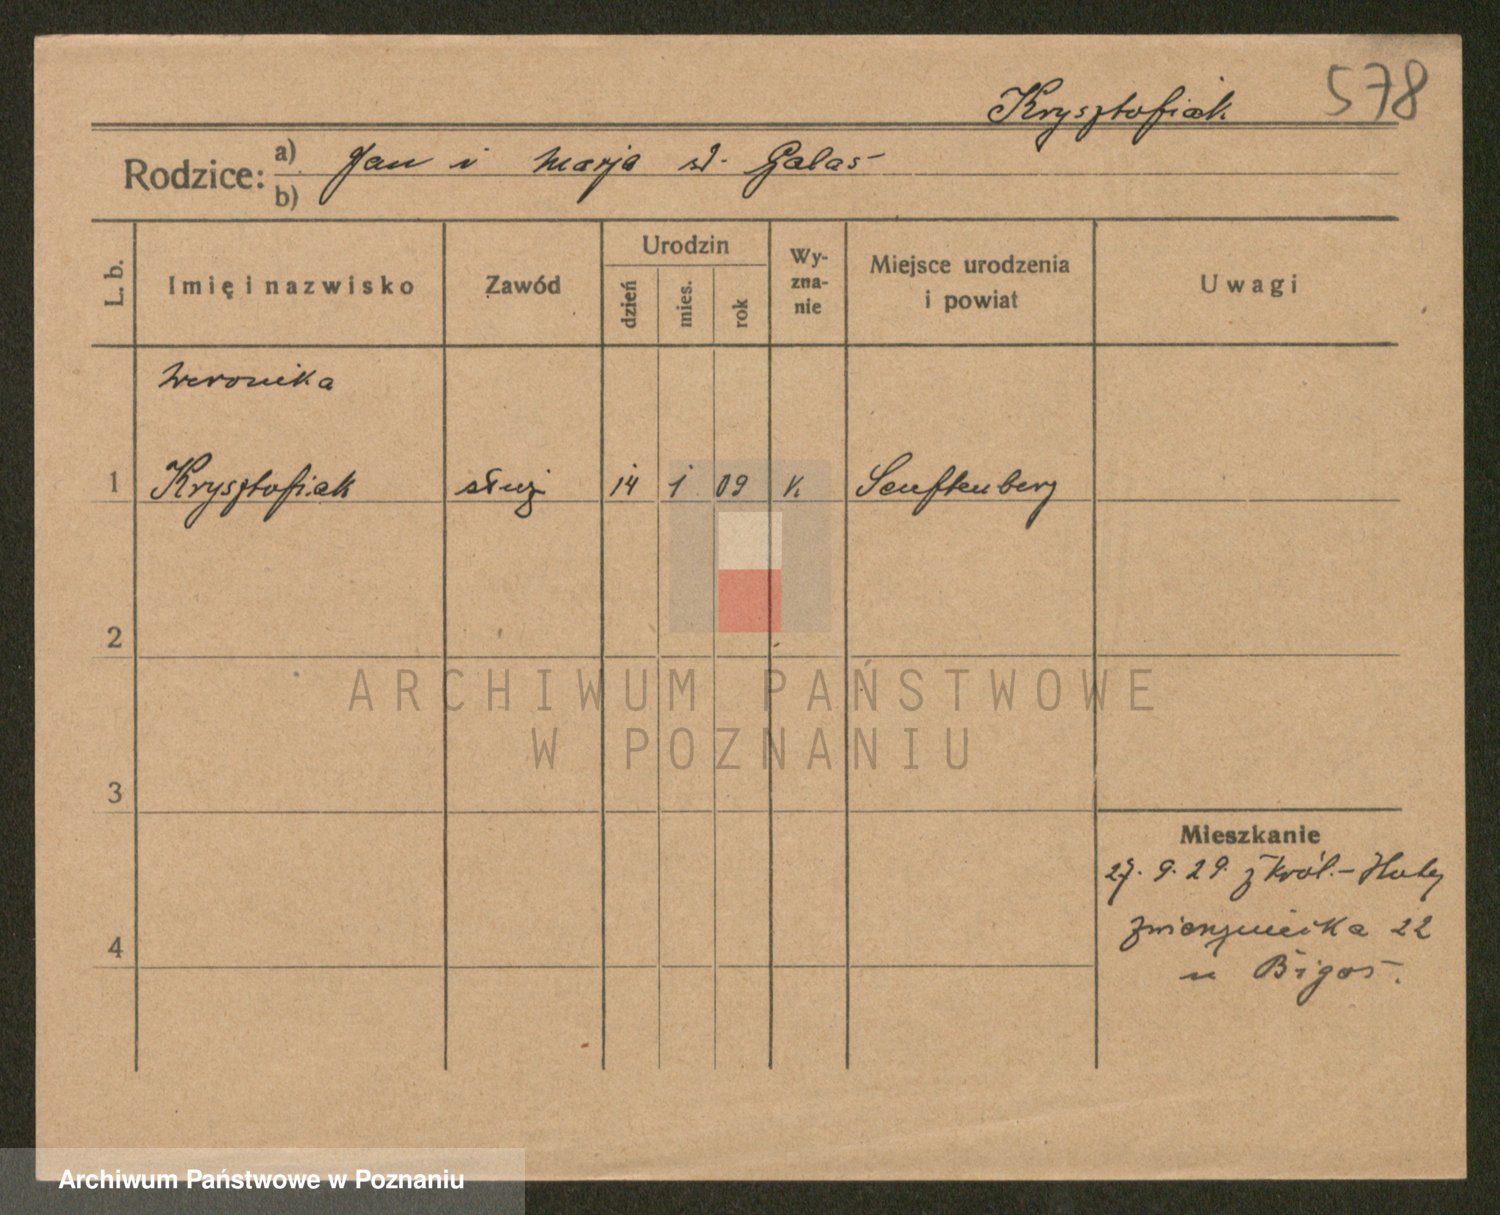 Krysztofiak 578
Rodzice: a) Jan i Marja d. Galas
b)
L. b. Imię i nazwisko Zawód Urodzin dzień mies. rok Wyznanie Miejsce urodzenia i powiat Uwagi
Weronika
1 Krysztofiak służ 14 1 09 k. Senftenberg
2
ARCHIWUM PAŃSTWOWE
W POZNANIU
3
Mieszkanie
27. 9. 29. z Król.-Huty
4 Zwierzyniecka 22
u Bigos.
Archiwum Państwowe w Poznaniu